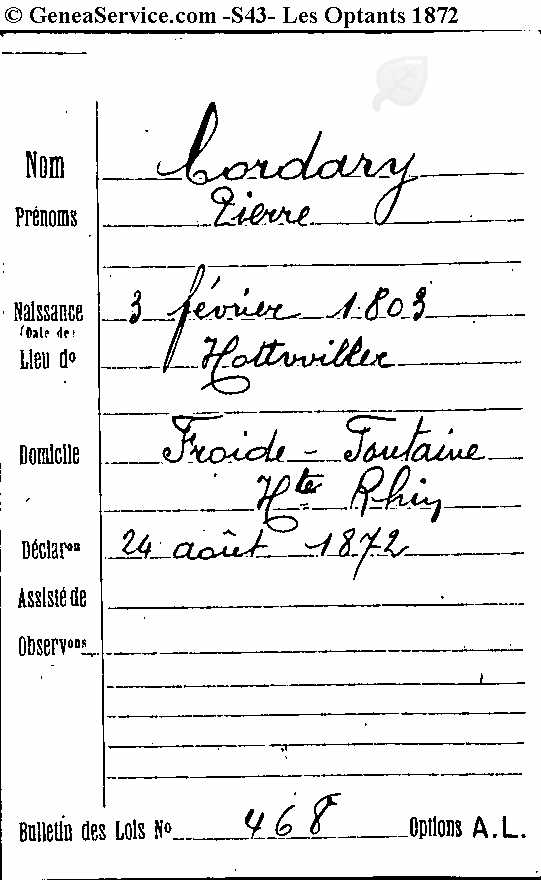 © GeneaService.com -S43- Les Optants 1872
Nom Cordary
Prénoms Pierre
Naissance 3 février 1803
(Date de)
Lieu do Hottwiller
Domicile Froide - Fontaine
Hte Rhin
Déclaron 24 août 1872
Assisté de
Observons
Bulletin des Lois No 468 Options A.L.